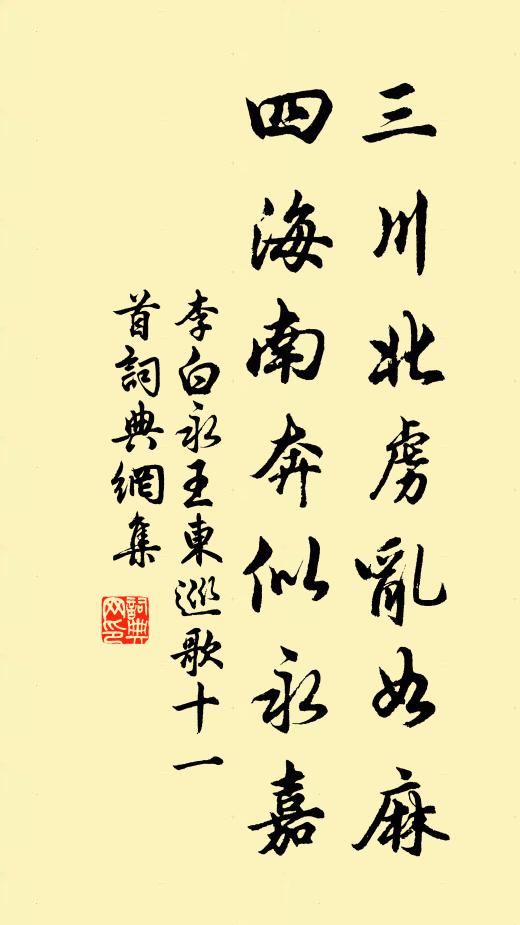 三川北虜亂如麻
四海南奔似永嘉
李白永王東巡歌十一
首詞典網集
詞典网印